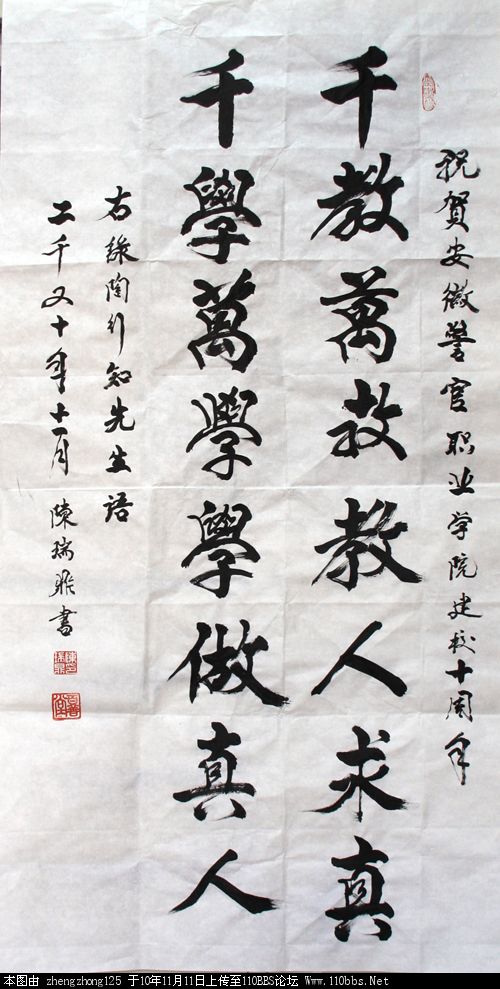 祝贺安徽警官职业学院建校十周年
千教萬教教人求真
千學萬學學做真人
右録陶行知先生语
二千又十年十一月 陳瑞飛書
本图由 zhengzhong125 于10年11月11日上传至110BBS论坛 Www.110bbs.Net